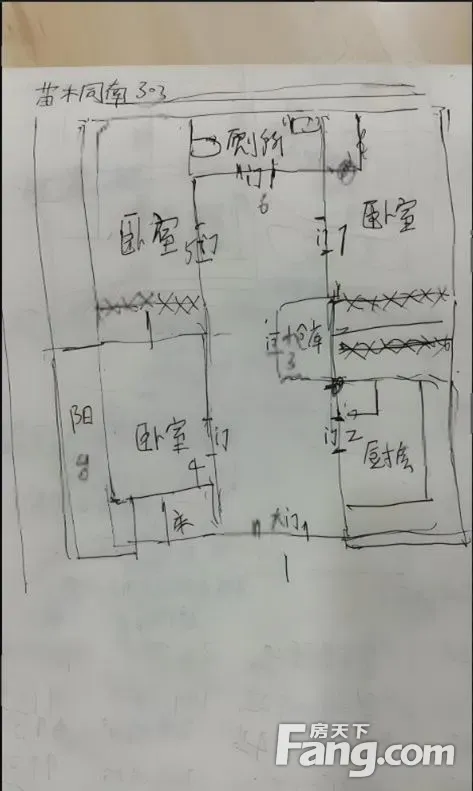 苗木同南303
厕所
门
6
卧室
5门
门7
卧室
门
小仓库
3
阳台
卧室
门
4
床
门2
厨房
大门
1
房天下
Fang.com